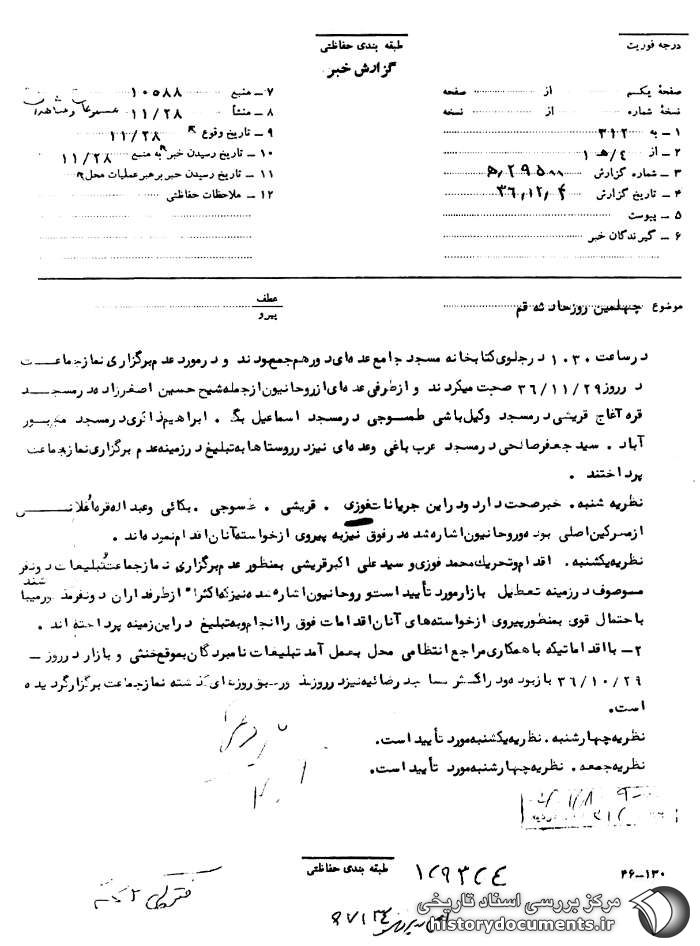 درجه فوریت
طبقه بندی حفاظتی
گزارش خبر
صفحهٔ یکم از صفحه
نسخهٔ شماره از نسخه
۱ – به ۳۱۲
۲ – از ۴/ هـ ۱
۳ – شماره گزارش
۴ – تاریخ گزارش ۳۶.۱۲.۴
۵ – پیوست
۶ – گیرندگان خبر
۷ – منبع ۱۰۵۸۸
۸ – منشأ ۱۱/۲۸
۹ – تاریخ وقوع ۱۱/۲۸
۱۰ – تاریخ رسیدن خبر به منبع ۱۱/۲۸
۱۱ – تاریخ رسیدن خبر برهبر عملیات محل
۱۲ – ملاحظات حفاظتی
موضوع چهلمین روز حادثه قم
عطف
پیرو
در ساعت ۱۰۳۰ در جلوی کتابخانه مسجد جامع عده‌ای دور هم جمع بودند و در مورد عدم برگزاری نماز جماعت
در روز ۳۶/۱۱/۲۹ صحبت میکردند و از طرفی عده‌ای از روحانیون از جمله شیخ حسین اصغرزاده در مسجد
قره آغاج قریشی در مسجد وکیل باشی طسوجی در مسجد اسماعیل بگ . ابراهیم ذاثری در مسجد
آباد . سید جعفر صالحی در مسجد عرب باغی وعده‌ای نیز در روستاها به تبلیغ در زمینه عدم برگزاری نماز جماعت
پرداختند .
نظریه شنبه . خبر صحت دارد و در این جریانات فوزی . قریشی . طسوجی . بکائی و عبداله
از محرکین اصلی بوده و روحانیون اشاره شده در فوق نیز به پیروی از خواسته آنان اقدام نموده‌اند .
نظریه یکشنبه . اقدام و تحریک محمد فوزی و سید علی اکبر قریشی بمنظور عدم برگزاری نماز جماعت و تبلیغات دونفر
موصوف در زمینه تعطیل بازار مورد تأیید است و روحانیون اشاره شده نیز که اکثراً از طرفداران دونفر مذبور میباشند
با احتمال قوی بمنظور پیروی از خواسته‌های آنان اقدامات فوق را انجام و به تبلیغ در این زمینه پرداخته‌اند .
۲– با اقداماتیکه با همکاری مراجع انتظامی محل بعمل آمد تبلیغات نامبردگان بموقع خنثی و بازار در روز –
۳۶/۱۰/۲۹ باز بوده و در اکثر مساجد رضائیه نیز در روز مذبور طبق روزهای گذشته نماز جماعت برگزار گردیده
است.
نظریه چهارشنبه . نظریه یکشنبه مورد تأیید است.
نظریه جمعه . نظریه چهارشنبه مورد تأیید است.
طبقه بندی حفاظتی
۴۶–۱۳۰
مرکز بررسی اسناد تاریخی
historydocuments.ir